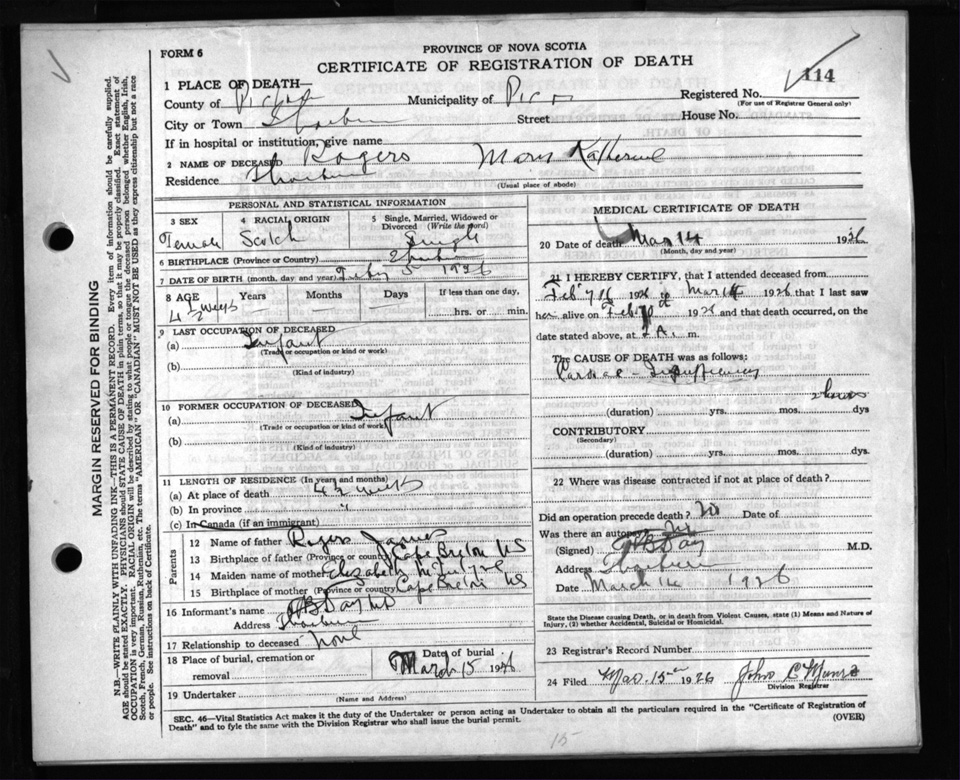 FORM 6
PROVINCE OF NOVA SCOTIA
CERTIFICATE OF REGISTRATION OF DEATH
114
1 PLACE OF DEATH—
Registered No.
(For use of Registrar General only)
County of Pictou Municipality of Pictou
City or Town Thorburn Street House No.
If in hospital or institution, give name
2 NAME OF DECEASED Rogers Mary Katherine
Residence Thorburn (Usual place of abode)
PERSONAL AND STATISTICAL INFORMATION
3 SEX 4 RACIAL ORIGIN 5 Single, Married, Widowed or Divorced (Write the word)
Female Scotch Single
6 BIRTHPLACE (Province or Country) Thorburn
7 DATE OF BIRTH (month, day and year) Feby 5 1926
8 AGE Years Months Days If less than one day,
4 1/2 weeks — — — hrs. or min.
9 LAST OCCUPATION OF DECEASED
(a) Infant
(Trade or occupation or kind or work)
(b)
(Kind of industry)
10 FORMER OCCUPATION OF DECEASED
(a) Infant
(Trade or occupation or kind of work)
(b)
(Kind of industry)
11 LENGTH OF RESIDENCE (In years and months)
(a) At place of death 4 1/2 weeks
(b) In province "
(c) In Canada (if an immigrant)
Parents
12 Name of father Rogers James
13 Birthplace of father (Province or country) Cape Breton NS
14 Maiden name of mother Elizabeth McIntyre
15 Birthplace of mother (Province or country) Cape Breton NS
16 Informant's name Day MD
Address Thorburn
17 Relationship to deceased None
18 Place of burial, cremation or removal
Date of burial
March 15 1926
19 Undertaker
(Name and Address)
MEDICAL CERTIFICATE OF DEATH
20 Date of death Mar 14 1926
(Month, day and year)
21 I HEREBY CERTIFY, that I attended deceased from
Feb 1926 to Mar 14 1926 that I last saw
her alive on Feb 1926 and that death occurred, on the
date stated above, at A. m.
The CAUSE OF DEATH was as follows:
Cardiac - Insufficiency
(duration) yrs. mos. dys
CONTRIBUTORY
(Secondary)
(duration) yrs. mos. dys.
22 Where was disease contracted if not at place of death?
Did an operation precede death? No Date of
Was there an autopsy No
(Signed) Day M.D.
Address Thorburn
Date March 14 1926
State the Disease Causing Death, or in death from Violent Causes, state (1) Means and Nature of Injury, (2) whether Accidental, Suicidal or Homicidal.
23 Registrar's Record Number
24 Filed Mar. 15th 1926 John C Munro
Division Registrar
SEC. 46—Vital Statistics Act makes it duty of the Undertaker or person acting as Undertaker to obtain all the particulars required in the "Certificate of Registration of
Death" and to fyle the same with the Division Registrar who shall issue the burial permit.
(OVER)
15
MARGIN RESERVED FOR BINDING
N.B.—WRITE PLAINLY WITH UNFADING INK—THIS IS A PERMANENT RECORD. Every item of information should be carefully supplied.
AGE should be stated EXACTLY. PHYSICIANS should STATE CAUSE OF DEATH in plain terms, so that it may be properly classified. Exact statement of
OCCUPATION is very important. RACIAL ORIGIN will be described by stating to what people or tongue the deceased person belonged whether English, Irish,
Scotch, French, German, Russian, Ruthenian, etc. The terms "AMERICAN" OR "CANADIAN" MUST NOT BE USED as they express citizenship but not a race
or people. See instructions on back of Certificate.